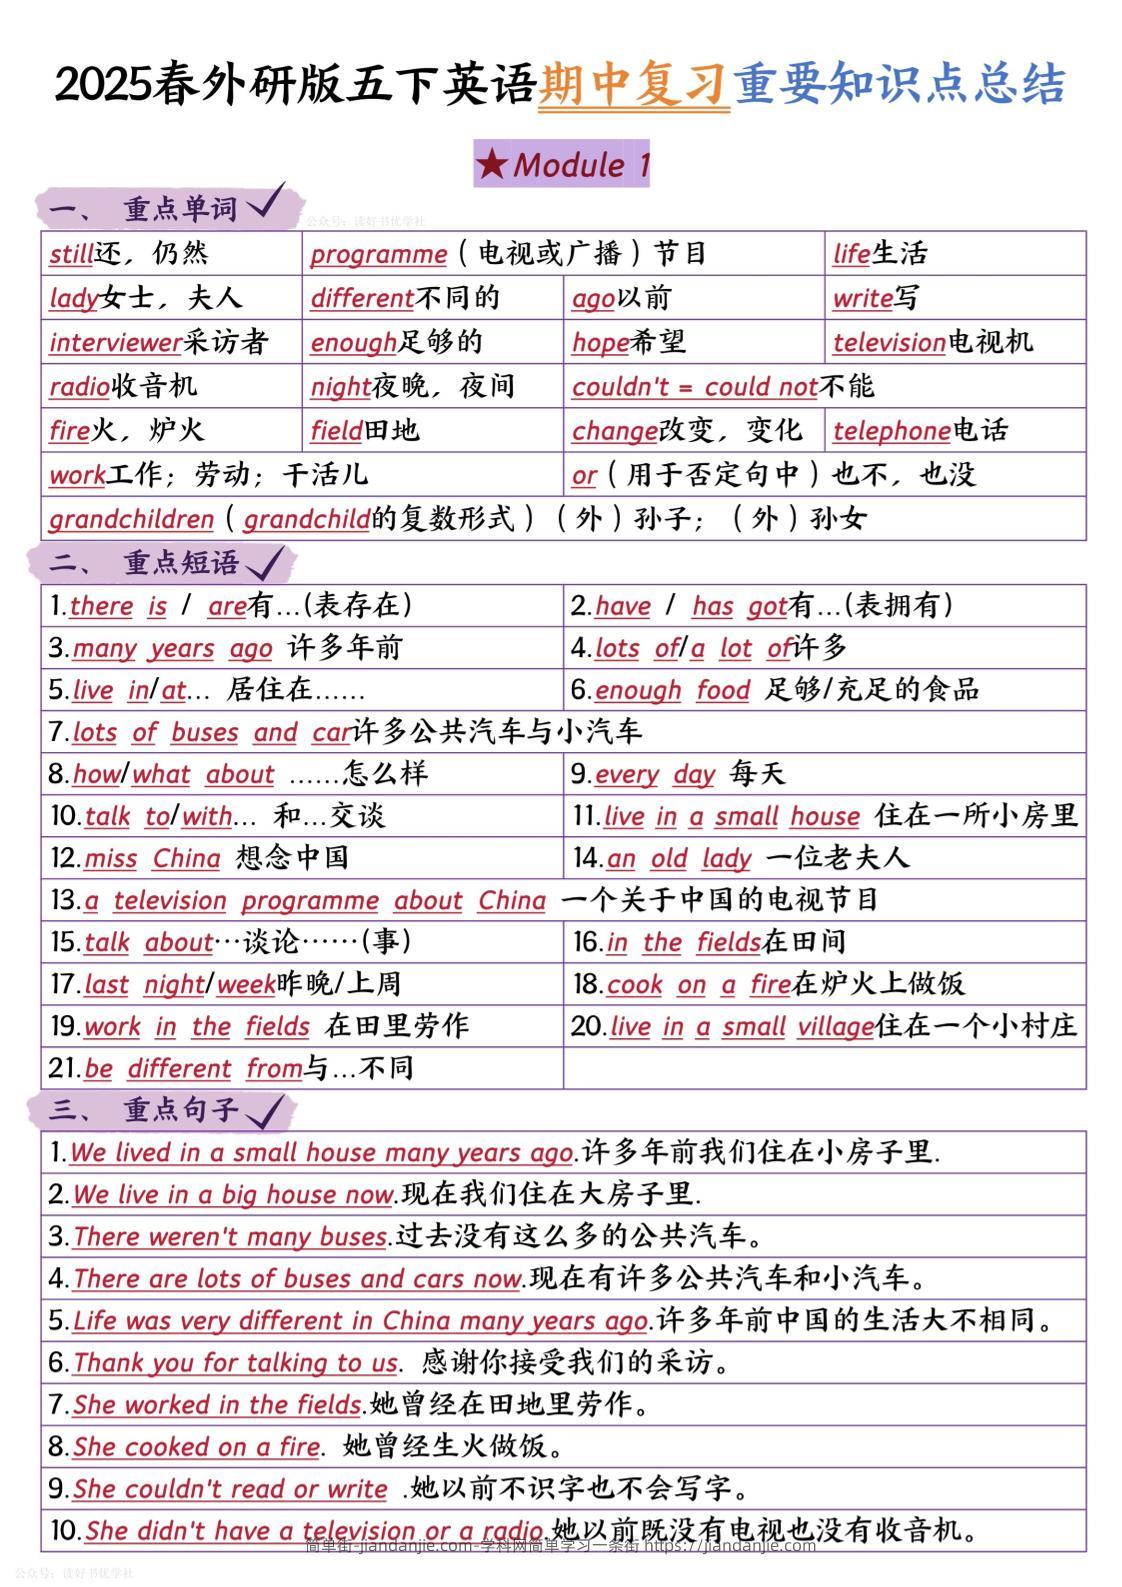 2025春外研版五下英语期中复习重要知识点总结
★Module 1
一、 重点单词
公众号：读好书优学社
still还，仍然 programme（电视或广播）节目 life生活
lady女士，夫人 different不同的 ago以前 write写
interviewer采访者 enough足够的 hope希望 television电视机
radio收音机 night夜晚，夜间 couldn't = could not不能
fire火，炉火 field田地 change改变，变化 telephone电话
work工作；劳动；干活儿 or（用于否定句中）也不，也没
grandchildren（grandchild的复数形式）（外）孙子；（外）孙女
二、 重点短语
1.there is / are有…(表存在) 2.have / has got有…(表拥有)
3.many years ago 许多年前 4.lots of/a lot of许多
5.live in/at… 居住在…… 6.enough food 足够/充足的食品
7.lots of buses and car许多公共汽车与小汽车
8.how/what about ……怎么样 9.every day 每天
10.talk to/with… 和…交谈 11.live in a small house 住在一所小房里
12.miss China 想念中国 14.an old lady 一位老夫人
13.a television programme about China 一个关于中国的电视节目
15.talk about…谈论……(事) 16.in the fields在田间
17.last night/week昨晚/上周 18.cook on a fire在炉火上做饭
19.work in the fields 在田里劳作 20.live in a small village住在一个小村庄
21.be different from与…不同
三、 重点句子
1.We lived in a small house many years ago.许多年前我们住在小房子里.
2.We live in a big house now.现在我们住在大房子里.
3.There weren't many buses.过去没有这么多的公共汽车。
4.There are lots of buses and cars now.现在有许多公共汽车和小汽车。
5.Life was very different in China many years ago.许多年前中国的生活大不相同。
6.Thank you for talking to us. 感谢你接受我们的采访。
7.She worked in the fields.她曾经在田地里劳作。
8.She cooked on a fire. 她曾经生火做饭。
9.She couldn't read or write .她以前不识字也不会写字。
10.She didn't have a television or a radio.她以前既没有电视也没有收音机。
简单街-jiandanjie.com-学科网简单学习一条街 https://jiandanjie.com
公众号：读好书优学社